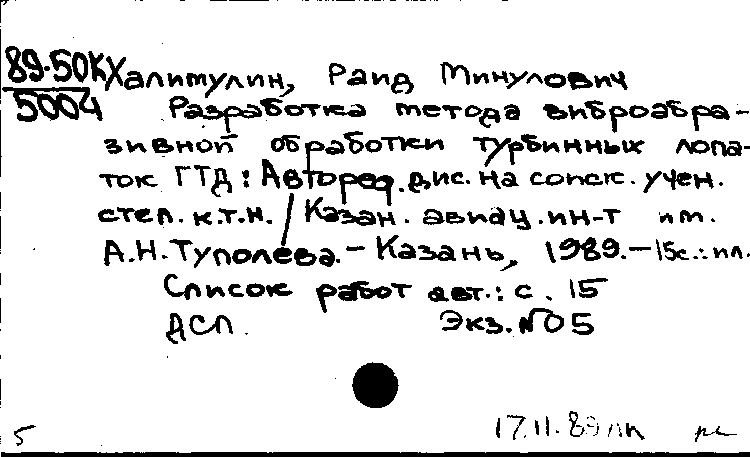 89-50К Халитулин, Раид Минулович
5004 Разработка метода виброабра-
зивной обработки турбинных лопа-
ток ГТД: Автореф. дис. на соиск. учен.
степ. к.т.н. / Казан. авиац. ин-т им.
А.Н. Туполева. - Казань, 1989. - 15с.: ил.
Список работ авт.: с. 15
ДСП. Экз. №05
5 17.11.89